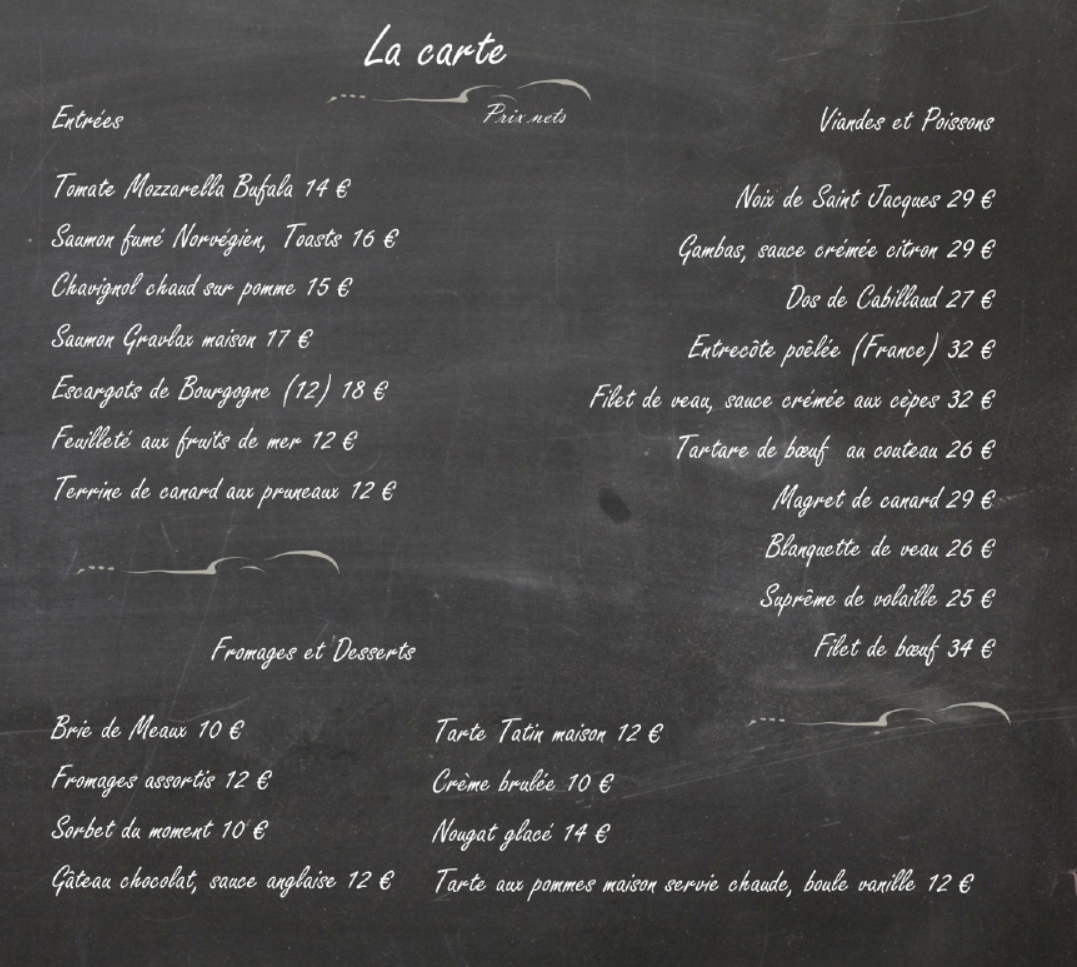 La carte
Prix nets
Entrées
Tomate Mozzarella Bufala 14 €
Saumon fumé Norvégien, Toasts 16 €
Chavignol chaud sur pomme 15 €
Saumon Gravlax maison 17 €
Escargots de Bourgogne (12) 18 €
Feuilleté aux fruits de mer 12 €
Terrine de canard aux pruneaux 12 €
Viandes et Poissons
Noix de Saint Jacques 29 €
Gambas, sauce crémée citron 29 €
Dos de Cabillaud 27 €
Entrecôte poêlée (France) 32 €
Filet de veau, sauce crémée aux cèpes 32 €
Tartare de bœuf au couteau 26 €
Magret de canard 29 €
Blanquette de veau 26 €
Suprême de volaille 25 €
Filet de bœuf 34 €
Fromages et Desserts
Brie de Meaux 10 €
Fromages assortis 12 €
Sorbet du moment 10 €
Gâteau chocolat, sauce anglaise 12 €
Tarte Tatin maison 12 €
Crème brulée 10 €
Nougat glacé 14 €
Tarte aux pommes maison servie chaude, boule vanille 12 €